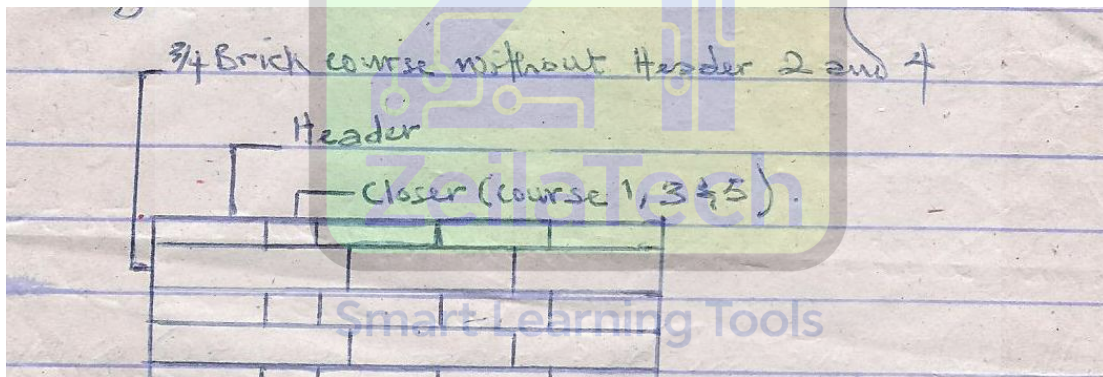 3/4 Brick course without Header 2 and 4
Header
Closer (course 1, 3 & 5).
ZeilaTech
Smart Learning Tools